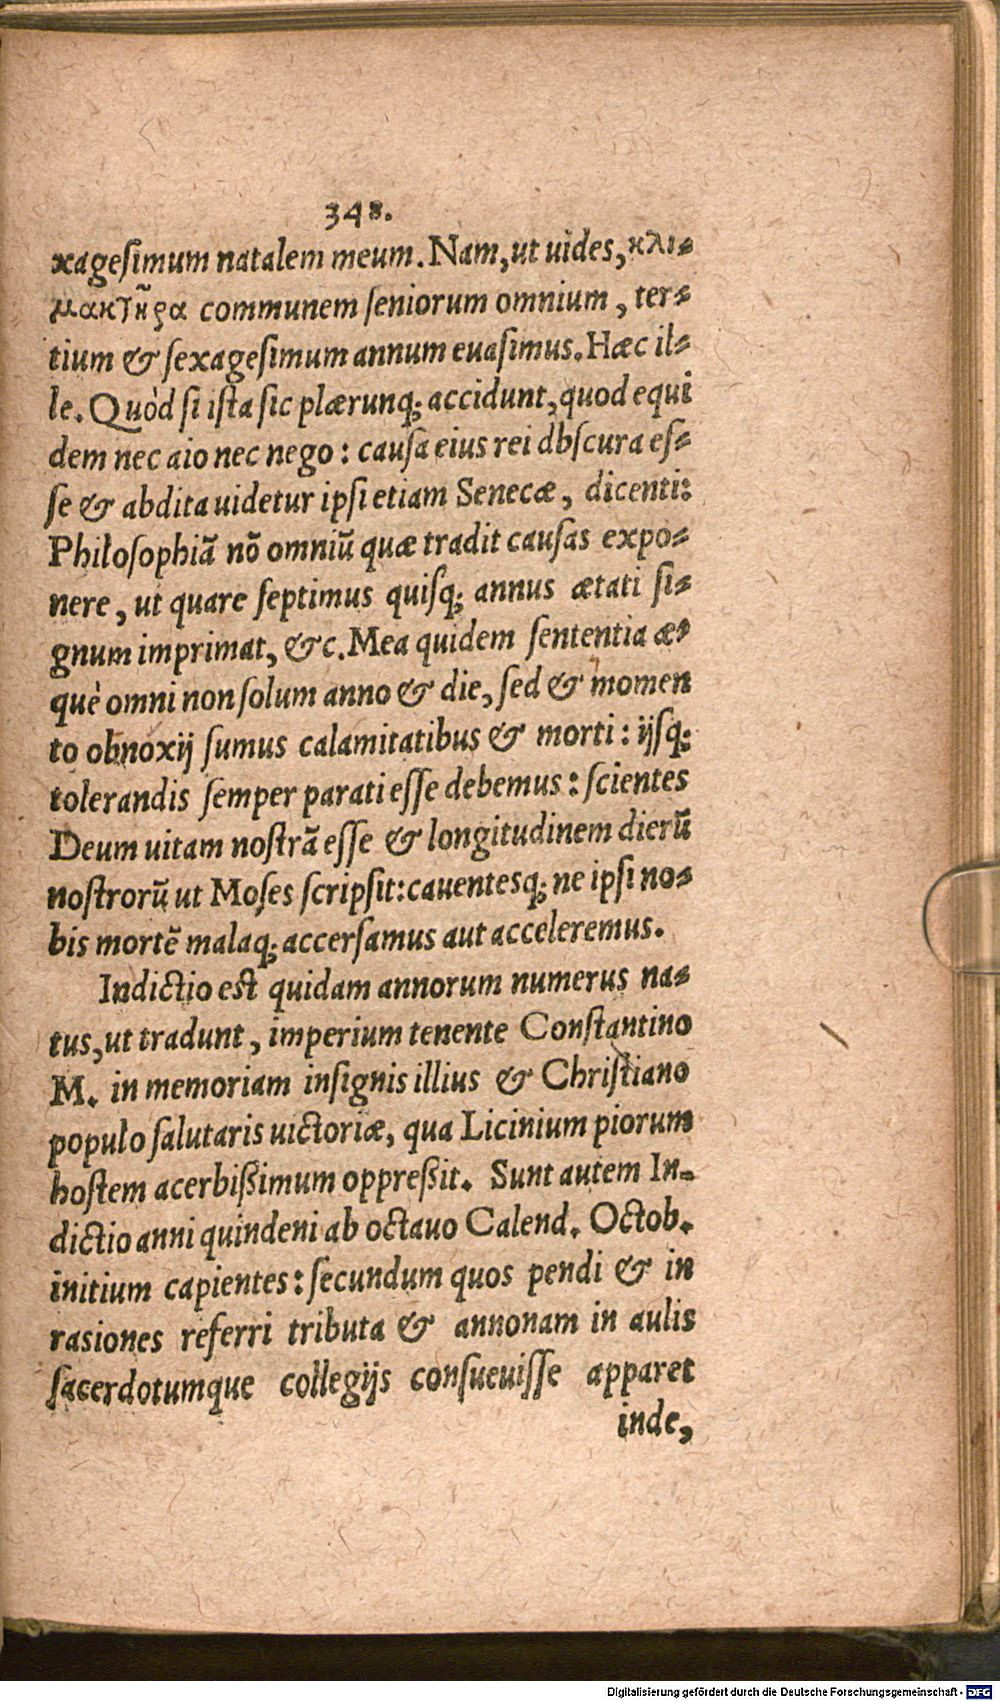 348.
xagesimum natalem meum. Nam, ut uides, κλι-
μακτῆρα communem seniorum omnium, ter-
tium & sexagesimum annum euasimus. Hæc il-
le. Quòd si ista sic plærunq; accidunt, quod equi
dem nec aio nec nego: causa eius rei dbscura es-
se & abdita uidetur ipsi etiam Senecæ, dicenti:
Philosophiã nõ omniũ quæ tradit causas expo-
nere, ut quare septimus quisq; annus ætati si-
gnum imprimat, &c. Mea quidem sententia æ-
què omni non solum anno & die, sed & momen
to obnoxij sumus calamitatibus & morti: ijsq;
tolerandis semper parati esse debemus: scientes
Deum uitam nostrã esse & longitudinem dierũ
nostrorũ ut Moses scripsit: cauentesq; ne ipsi no-
bis mortẽ malaq; accersamus aut acceleremus.
Indictio est quidam annorum numerus na-
tus, ut tradunt, imperium tenente Constantino
M. in memoriam insignis illius & Christiano
populo salutaris uictoriæ, qua Licinium piorum
hostem acerbißimum oppreßit. Sunt autem In-
dictio anni quindeni ab octauo Calend. Octob.
initium capientes: secundum quos pendi & in
rasiones referri tributa & annonam in aulis
sacerdotumque collegijs consueuisse apparet
inde,
Digitalisierung gefördert durch die Deutsche Forschungsgemeinschaft - DFG